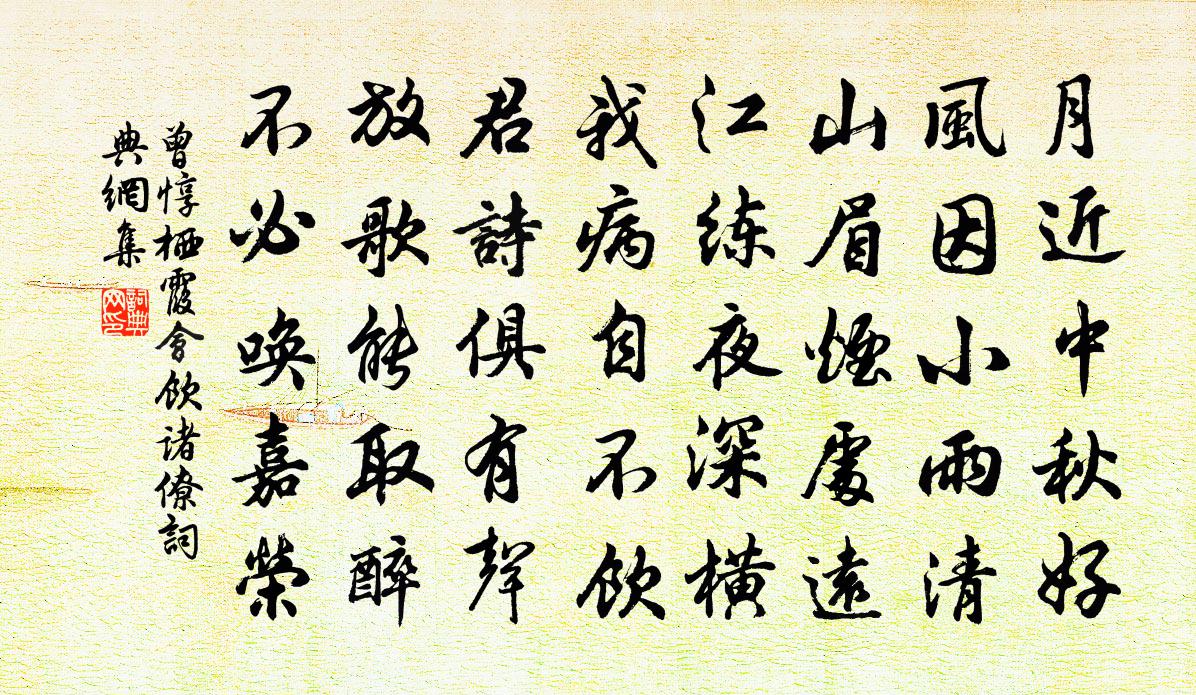 月近中秋好
風因小雨清
山眉煙處遠
江练夜深橫
我病自不飲
君詩俱有聲
放歌能取醉
不必喚嘉榮
曾惇栖霞會飲诸僚詞
典網集
詞典
网印